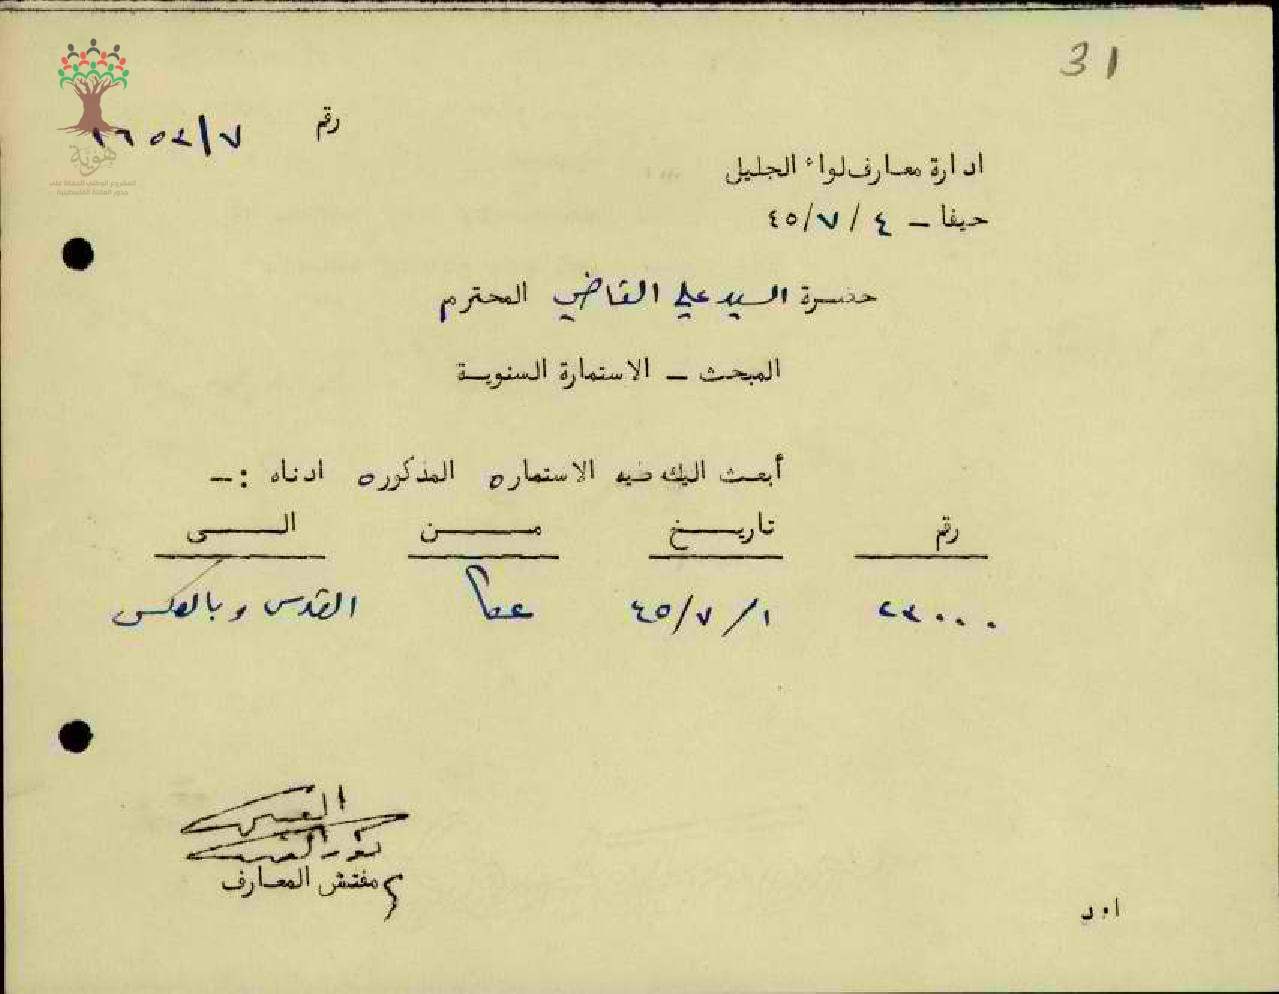 31
رقم ٧/١٦٥٣
هويّة
المشروع الوطني للحفاظ على
جذور العائلة الفلسطينية
ادارة معارف لواء الجليل
حيفا ــ ٤ /٤٥/٧
حضرة السيد علي القاضي المحترم
المبحث ــ الاستمارة السنوية
أبعث اليك طيه الاستماره المذكوره ادناه :ــ
رقم تاريخ من الى
٢٣٠٠٠ ١/٤٥/٧ عكا القدس وبالعكس
مفتش المعارف